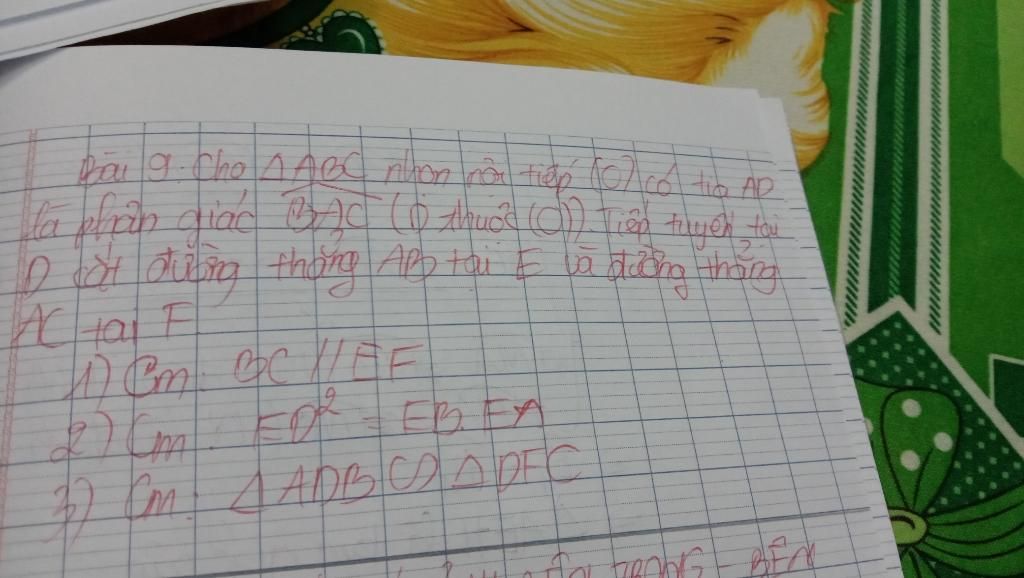 Bài 9. Cho △ABC nhọn nội tiếp (O) có tia AD
là phân giác BAC (D thuộc (O)). Tiếp tuyến tại
D cắt đường thẳng AB tại E và đường thẳng
AC tại F
1) Cm: BC // EF
2) Cm: ED² = EB.EA
3) Cm: △ADB ∽ △DFC